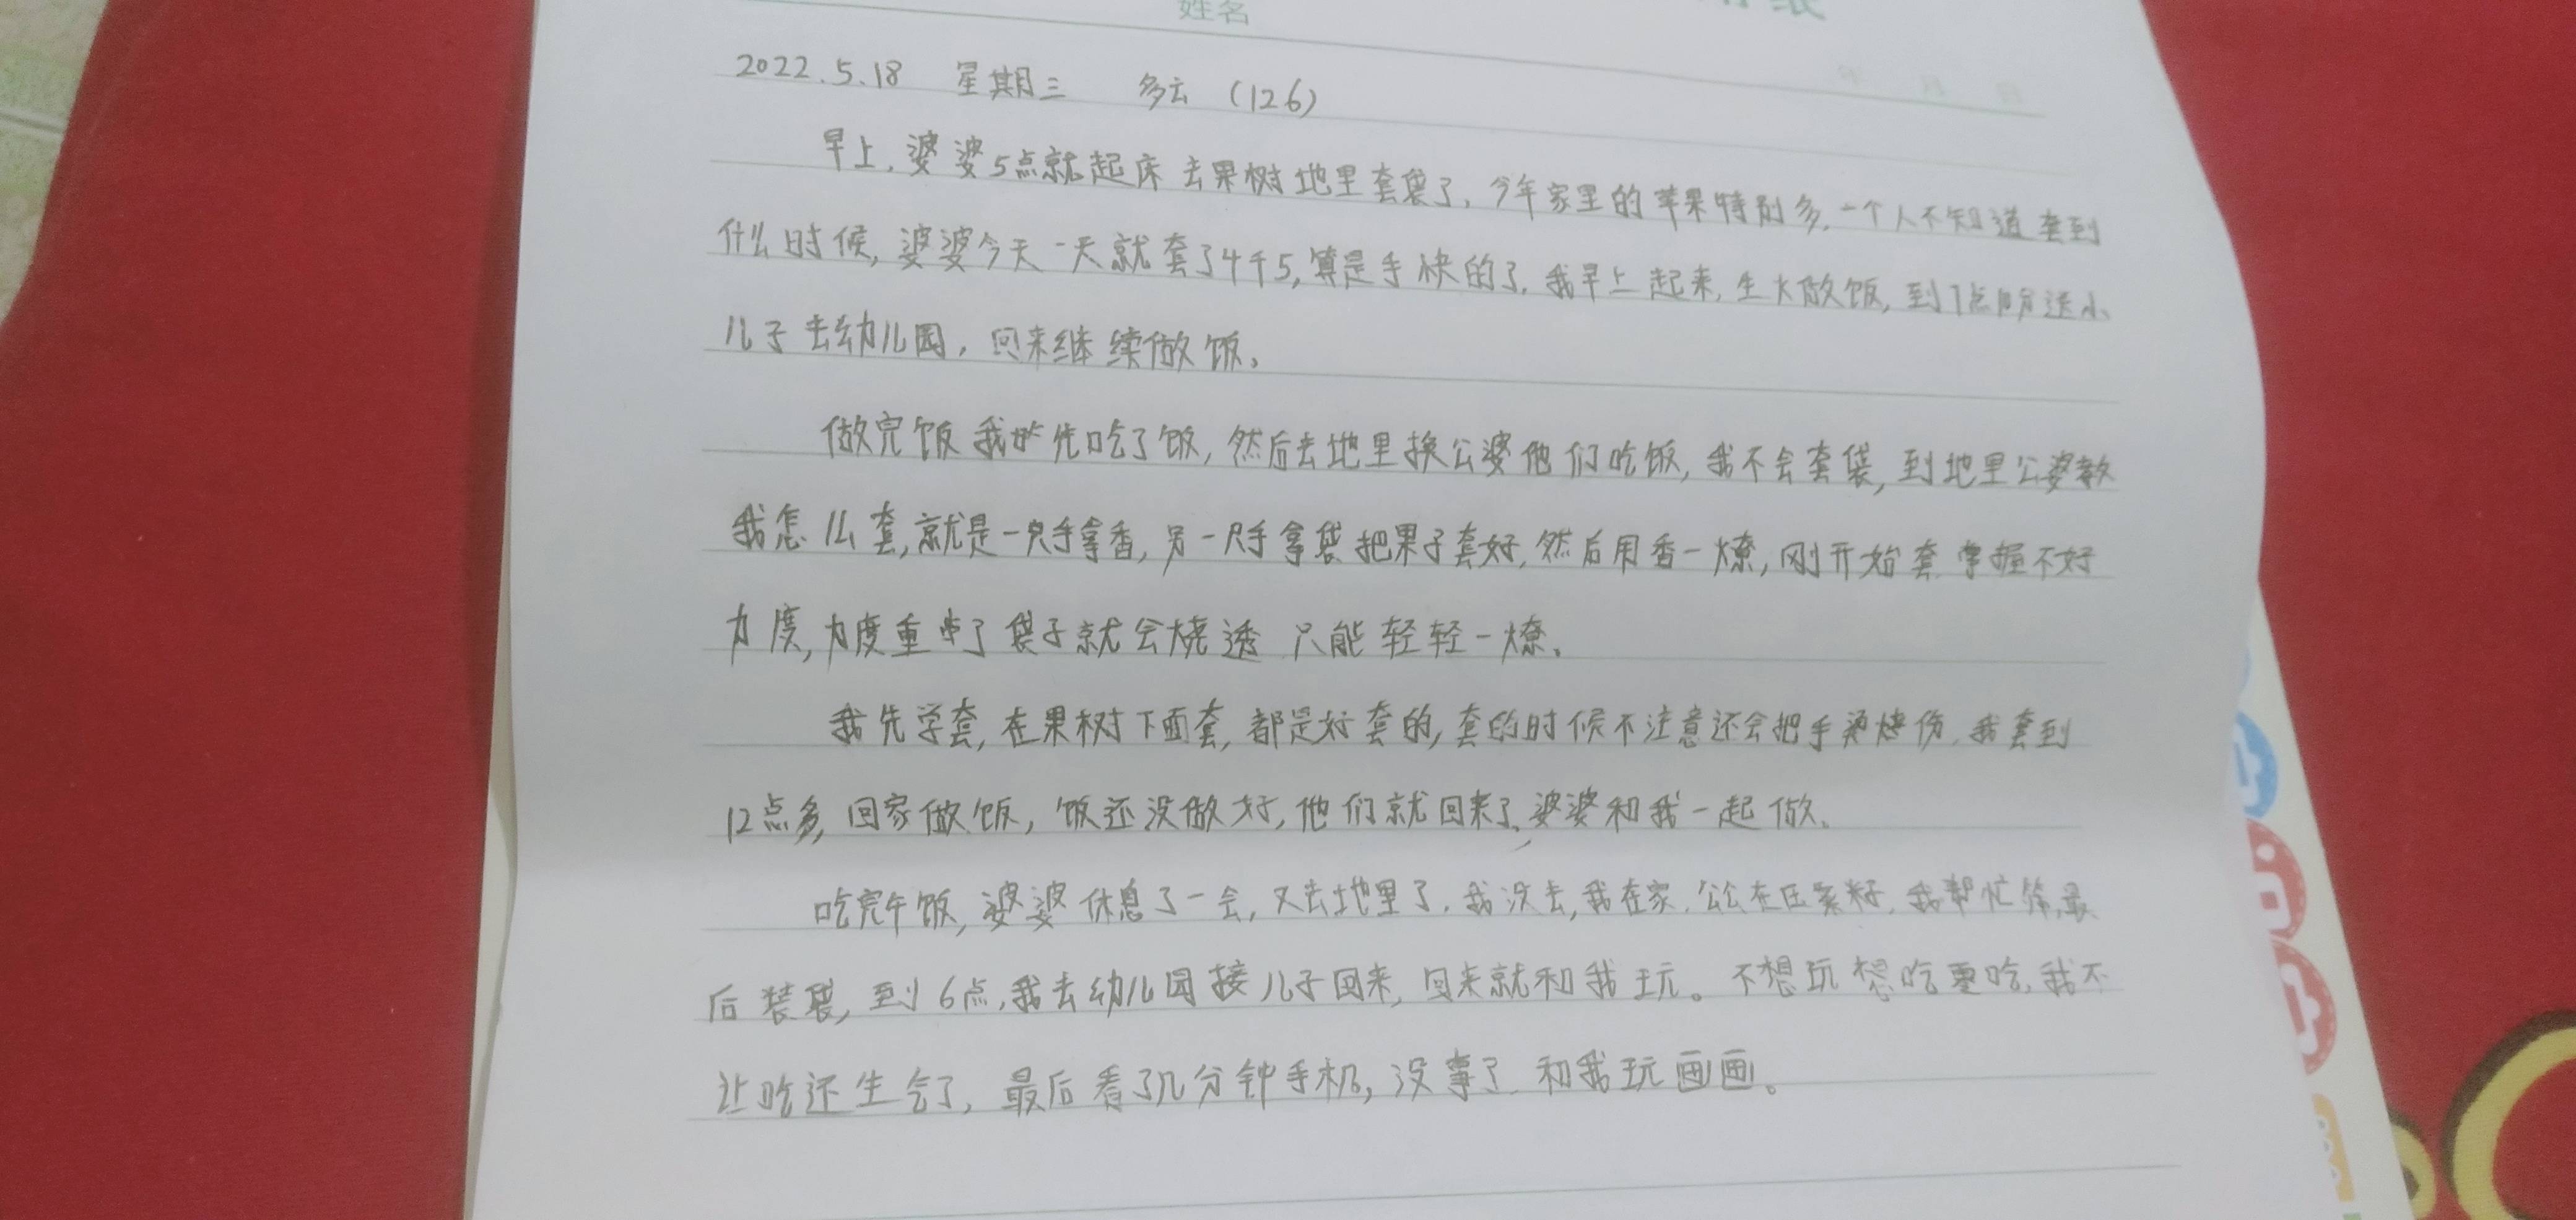 姓名
2022.5.18 星期三 多云 (126)
早上,婆婆5点就起床去果树地里套袋了,今年家里的苹果特别多,一个人不知道套到
什么时候,婆婆今天一天就套了4千5,算是手快的了,我早上起来,生火做饭,到7点 送小
儿子去幼儿园,回来继续做饭。
做完饭我 先吃了饭,然后去地里换公婆他们吃饭,我不会套袋,到地里公婆教
我怎么套,就是一只手拿香,另一只手拿袋把果子套好,然后用香一燎,刚开始套掌握不好
力度,力度重 了袋子就会烧透 只能轻轻一燎。
我先学套,在果树下面套,都是好套的,套的时候不注意还会把手 烧伤,我套到
12点多,回家做饭,饭还没做好,他们就回来了,婆婆和我一起做。
吃完午饭,婆婆休息了一会,又去地里了,我没去,我在家,公公在压 ,我帮忙 ,最
后装袋,到6点,我去幼儿园接儿子回来,回来就和我玩。不想玩想吃 吃,我不
让吃还生气了,最后看了几分钟手机,没事了 和我玩画画。